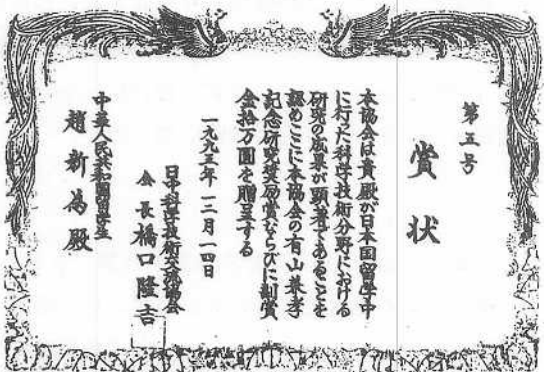 第五号
賞状
本協会は貴殿が日本国留学中
に行った科学技術分野における
研究の成果が顕著であることを
認めここに本協会の有山兼孝
記念研究奨励賞ならびに副賞
金拾万圓を贈呈する
一九九三年一二月一四日
日中科学技術交流協会
会長橋口隆吉
中華人民共和國留学生
趙新為殿